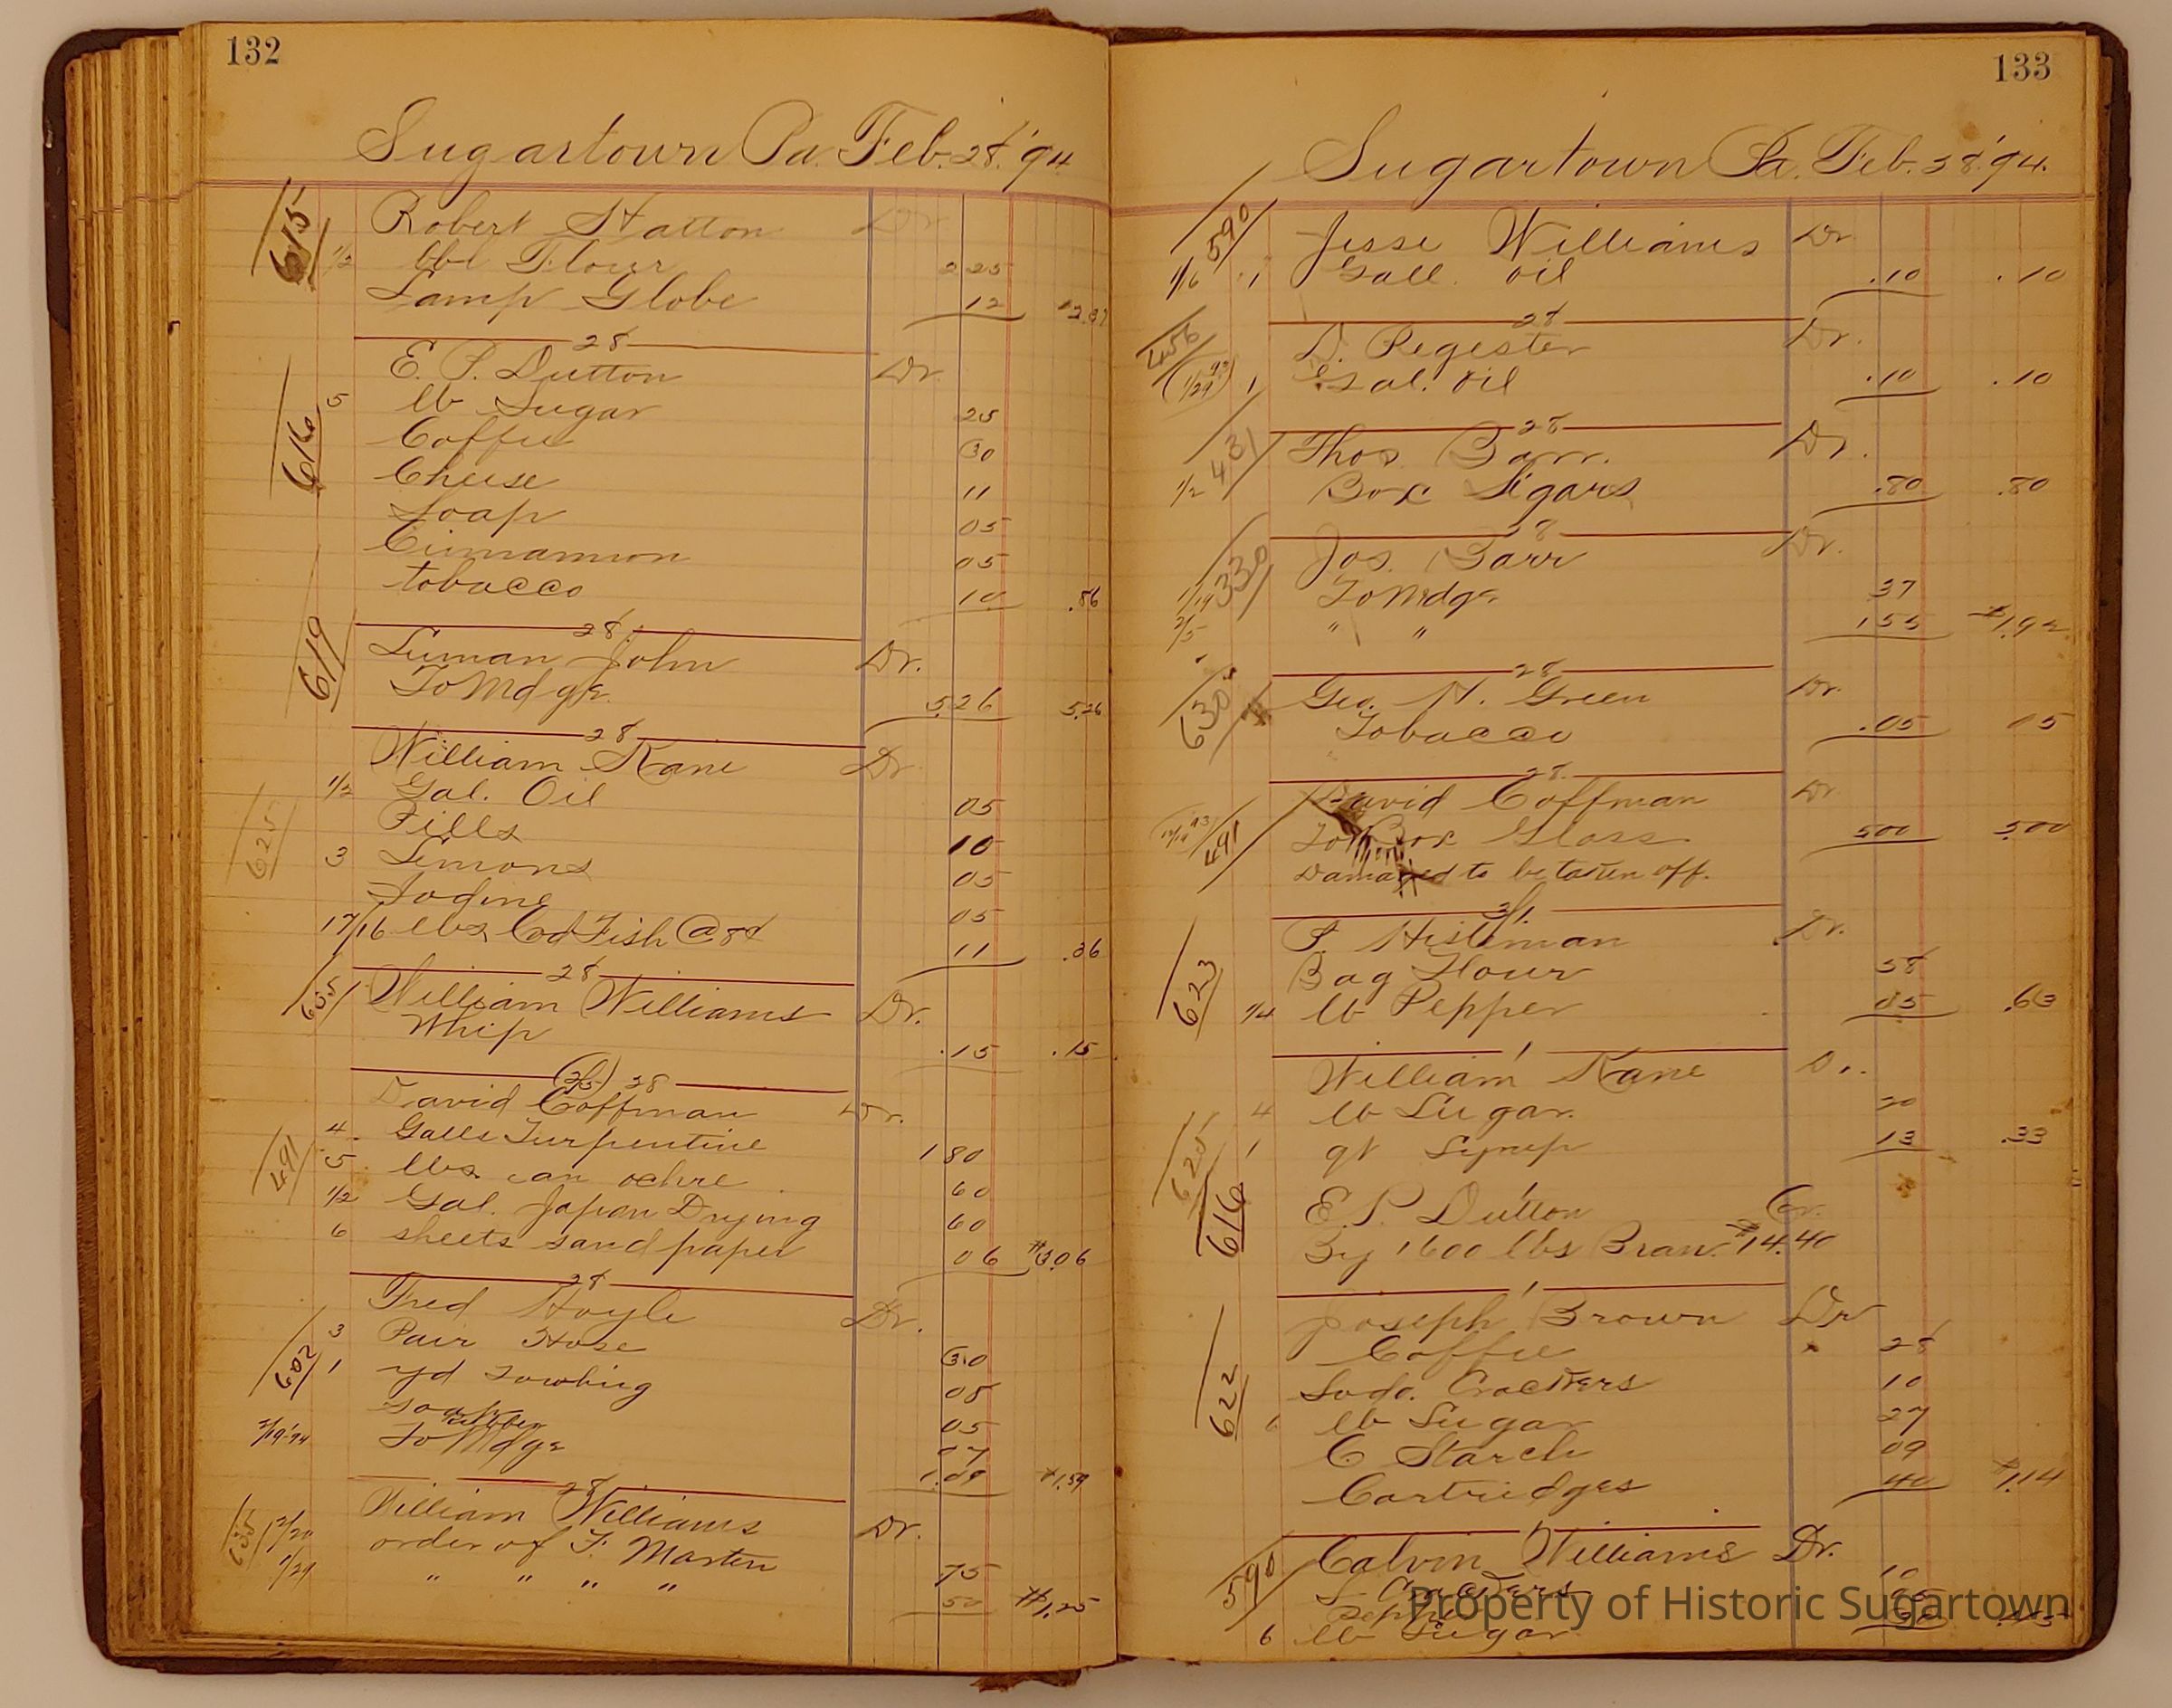 132
Sugartown Pa. Feb. 28. '94
615
Robert Hatton Dr
1/2 bbl Flour 2 25
Lamp Globe 12 $2.37
28
616
E. P. Dutton Dr.
5 lb Sugar 25
Coffee 30
Cheese 11
Soap 05
Cinnamon 05
tobacco 10 .86
28
619
Luman John Dr.
To Mdge. 5.26 5.26
28
625
William Kane Dr
1/2 Gal. Oil 05
Pills 10
3 Lemons 05
Iodine 05
1 7/16 lbs Cod Fish @ 8¢ 11 .36
28
635
William Williams Dr.
Whip .15 .15
28
491
David Coffman Dr.
4 Galls Turpentine 1 80
5 lbs can ochre 60
1/2 Gal. Japan Drying 60
6 sheets sand paper 06 $3.06
28
602
Fred Hoyle Dr.
3 Pair Hose 30
1 yd Towling 08
Soap 05
Rubber 07
2/19-'94 To Mdge 1.09 $1.59
28
635
William Williams Dr.
2/20 order of F. Martin 75
1/29 " " " " 50 $1.25
133
Sugartown Pa. Feb. 28. '94.
590
Jesse Williams Dr
1/16 1 Gall. oil .10 .10
28
456
D. Register Dr.
(1/29 '93) 1 Gal. oil .10 .10
28
431
Thos. Barr. Dr.
1/2 Box Sigars .80 .80
28
330
Jos. Barr Dr.
1/19 To Mdge 37
2/5 " " 1 55 $1.92
28
630
Geo. N. Green Dr.
Tobacco .05 05
28.
491
David Coffman Dr
To Box Glass 5 00 5.00
Damaged to be taken off.
3/1.
623
P. Histeman Dr.
Bag Flour 58
1/4 lb Pepper 05 .63
1
625
William Kane Dr.
4 lb Sugar. 20
1 qt Syrup 13 .33
1
616
E. P. Dutton Cr.
By 1600 lbs Bran. $14.40
1
622
Joseph Brown Dr
Coffee 28
Soda. Crackers 10
6 lb Sugar 27
C Starch 09
Cartridges 40 $1.14
1
590
Calvin Williams Dr.
S Crackers 10
Pepper 05
6 lb Sugar
Property of Historic Sugartown